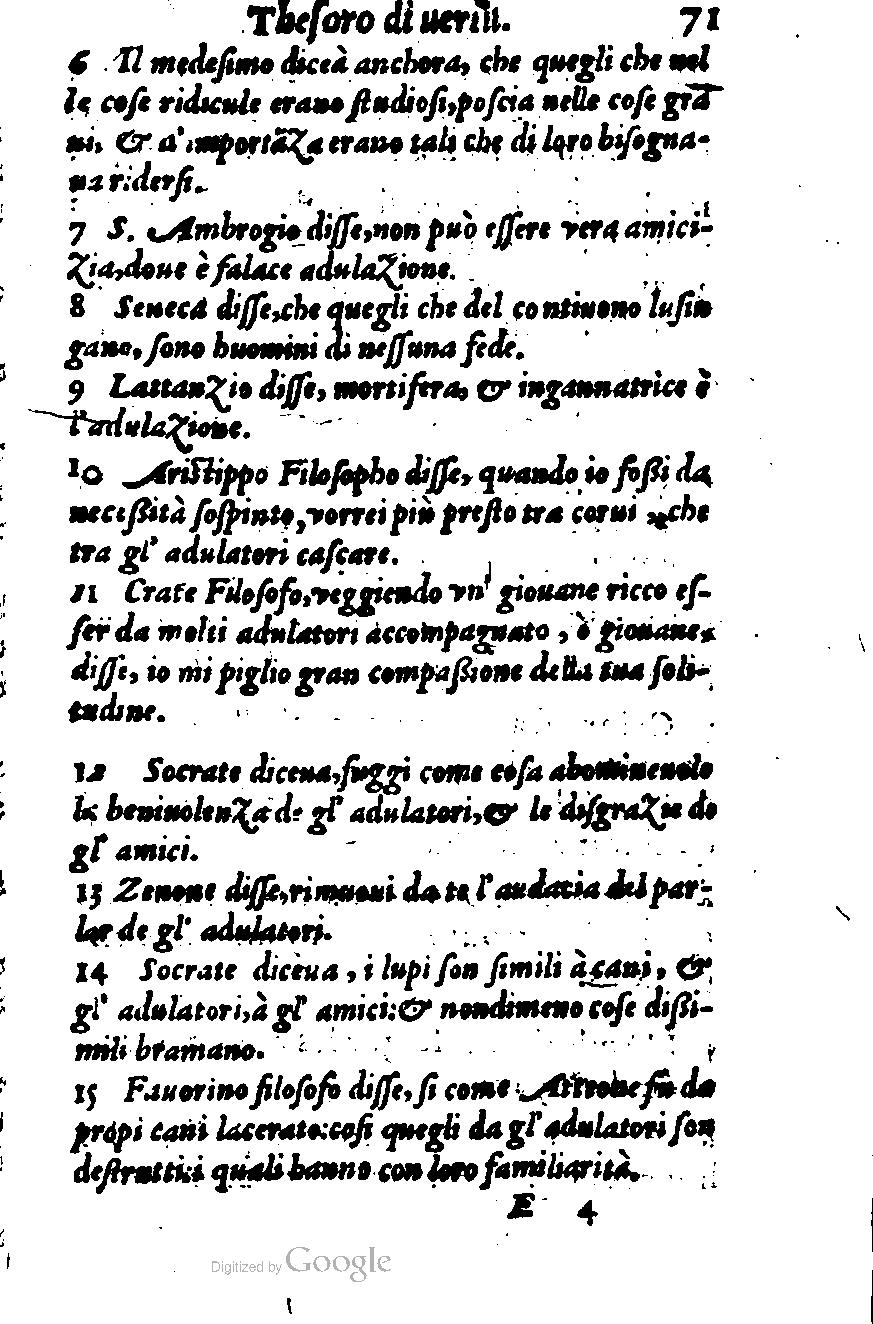 Thesoro di uertù. 71
6 Il medesimo diceà anchora, che quegli che nel
le cose ridicule erano studiosi, poscia nelle cose gra
ui, & d'importāza erano tali che di loro bisogna-
ua ridersi.
7 S. Ambrogio disse, non può essere vera amici-
zia, doue è falace adulazione.
8 Seneca disse, che quegli che del continuono lusin
gano, sono huomini di nessuna fede.
9 Lattanzio disse, mortifera, & ingannatrice è
l'adulazione.
10 Aristippo Filosopho disse, quando io fossi da
necessità sospinto, vorrei più presto tra corui, che
tra gl' adulatori cascare.
11 Crate Filosofo, veggiendo vn' giouane ricco es-
ser da molti adulatori accompagnato, è giouane,
disse, io mi piglio gran compassione della tua soli-
tudine.
12 Socrate diceua, fuggi come cosa abomineuole
la beniuolenza de gl' adulatori, & le disgrazie de
gl' amici.
13 Zenone disse, rimuoui da te l'audacia del par-
lar de gl' adulatori.
14 Socrate diceua, i lupi son simili à cani, &
gl' adulatori, à gl' amici: & nondimeno cose dissi-
mili bramano.
15 Fauorino filosofo disse, si come Atteone fu da
propi cani lacerato: cosi quegli da gl' adulatori son
destrutti: i quali hanno con loro familiarità.
E 4
Digitized by Google